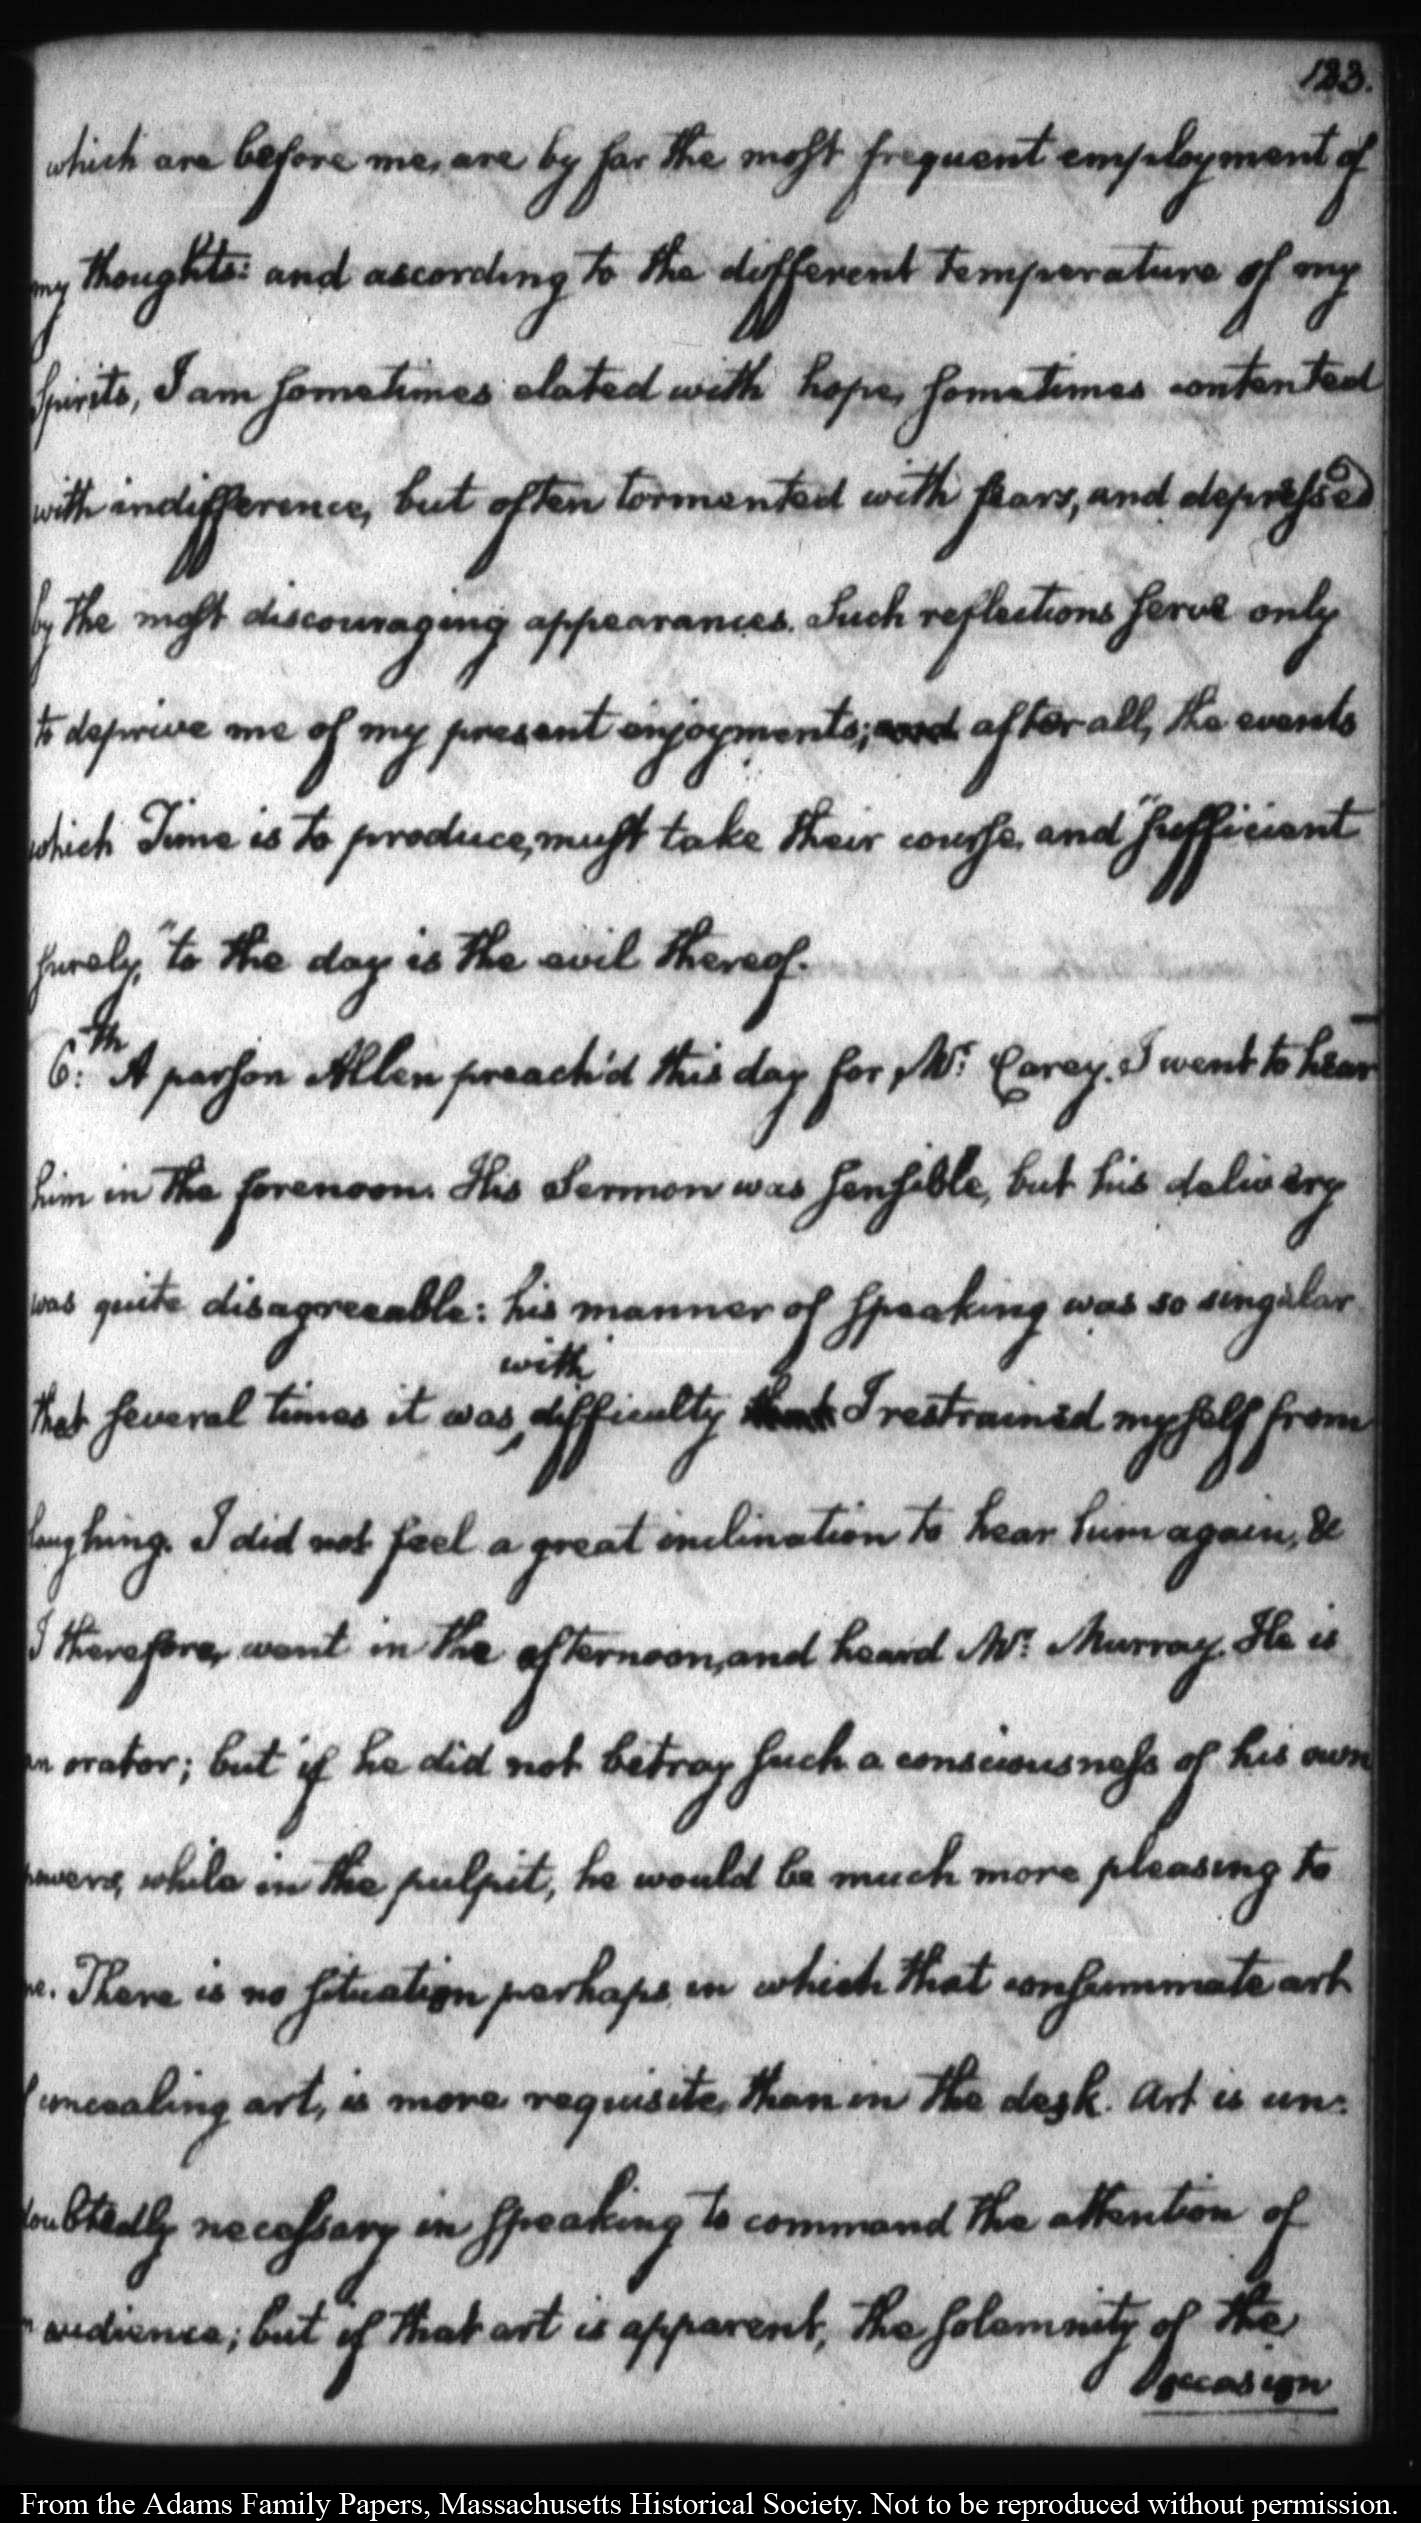 123.
which are before me, are by far the most frequent employment of
my thoughts: and according to the different temperature of my
Spirits, I am sometimes elated with hope, sometimes contented
with indifference, but often tormented with fears, and depressed
by the most discouraging appearances. Such reflections serve only
to deprive me of my present enjoyments; and after all, the events
which Time is to produce, must take their course, and "sufficient
surely," to the day is the evil thereof.
6:th A parson Allen preach'd this day for Mr: Carey. I went to hear
him in the forenoon. His Sermon was sensible, but his delivery
was quite disagreeable: his manner of speaking was so singular
with
that several times it was difficulty that I restrained myself from
laughing. I did not feel a great inclination to hear him again, &
I therefore, went in the afternoon, and heard Mr: Murray. He is
an orator; but if he did not betray such a consciousness of his own
powers, while in the pulpit, he would be much more pleasing to
me. There is no situation perhaps, in which that consummate art
of concealing art, is more requisite, than in the desk. Art is un:
doubtedly necessary in speaking to command the attention of
an audience; but if that art is apparent, the solemnity of the
occasion
From the Adams Family Papers, Massachusetts Historical Society. Not to be reproduced without permission.